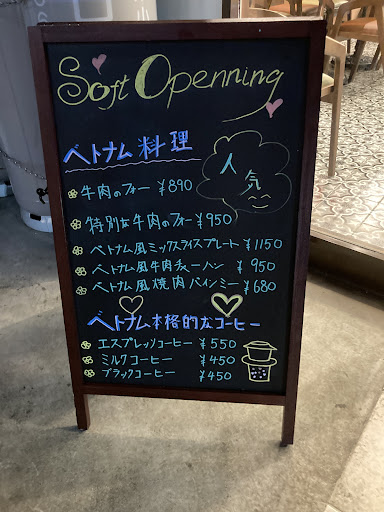 Soft Openning
ベトナム料理
人気
牛肉のフォー ¥890
特別な牛肉のフォー ¥950
ベトナム風ミックスライスプレート ¥1150
ベトナム風牛肉チャーハン ¥950
ベトナム風焼肉バインミー ¥680
ベトナム本格的なコーヒー
エスプレッソコーヒー ¥550
ミルクコーヒー ¥450
ブラックコーヒー ¥450